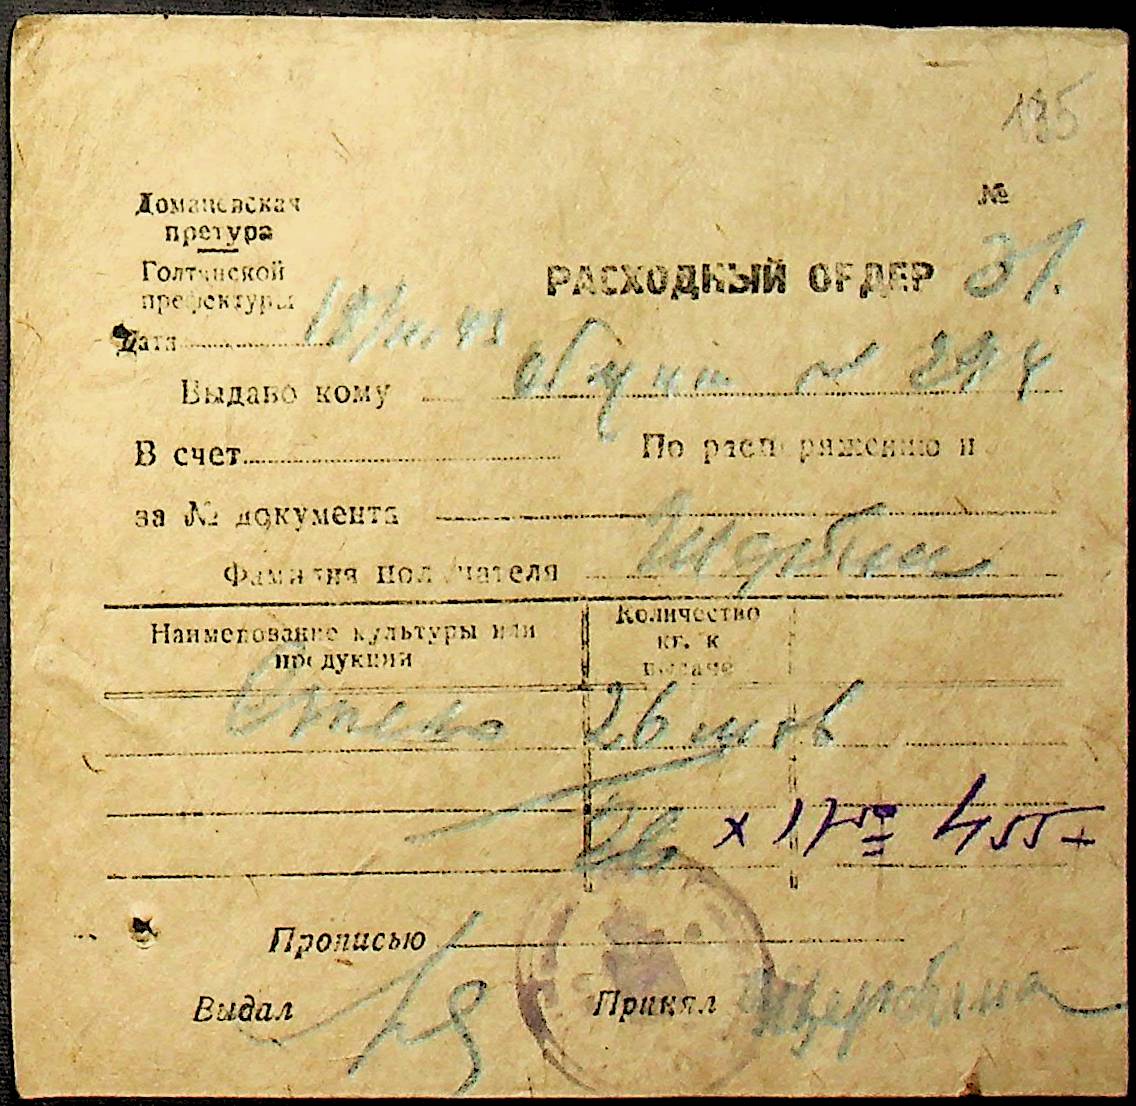 135
Доманевская
претура
№
Голтянской
префектуры
РАСХОДНЫЙ ОРДЕР 31.
Дата 18/III 43
Выдано кому
В счет По распоряжению и
за № документа
Фамилия получателя Щербина
Наименование культуры или продукции
Количество кг. к выдаче
26 шт
26 x 17 50 = 455
Прописью
Выдал Принял Щербина